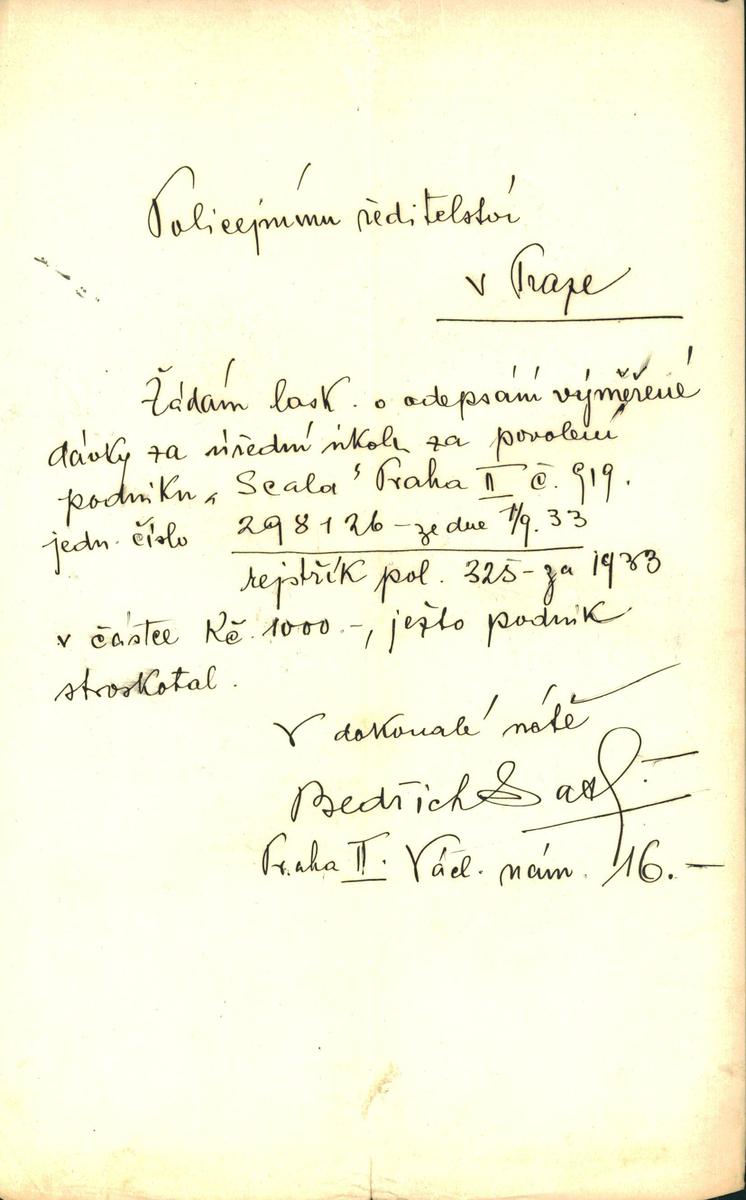 Policejnímu ředitelství
v Praze
Žádám lask. o odepsání výměřené
dávky za úřední úkol za povolení
podniku „Scala“ Praha II č. 919.
jedn. číslo 298126 - ze dne 1/9. 33
rejstřík pol. 325 - za 1933
v částce Kč. 1000 -, ježto podnik
stroskotal.
V dokonalé úctě
Bedřich
Praha II. Václ. nám. 16. -